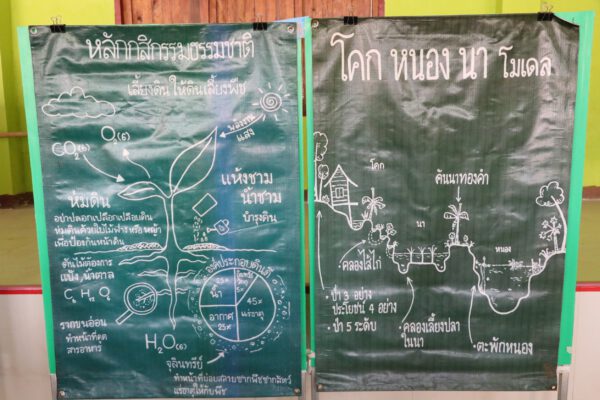 หลักกสิกรรมธรรมชาติ
เลี้ยงดิน ให้ดินเลี้ยงพืช
O₂(6)
CO₂(6)
พลังงาน
แสง
ห่มดิน
อย่าปลอกเปลือกเปลือยดิน
ห่มดินด้วยใบไม้ฟาง หรือ หญ้า
เพื่อป้องกันหน้าดิน
แห้งชาม
น้ำชาม
บำรุงดิน
ต้นไม้ต้องการ
แป้ง, น้ำตาล
องค์ประกอบดินดี
น้ำ
25%
45%
แร่ธาตุ
อากาศ
25%
รากขนอ่อน
ทำหน้าที่ดูด
สารอาหาร
H₂O(6)
จุลินทรีย์
ทำหน้าที่ย่อยสลายซากพืชซากสัตว์
แร่ธาตุให้กับพืช
โคก หนอง นา โมเดล
โคก
คันนาทองคำ
นา
หนอง
•คลองไส้ไก่
•ป่า 3 อย่าง
ประโยชน์ 4 อย่าง
•ป่า 5 ระดับ
•คลองเลี้ยงปลา
ในนา
•ตะพักหนอง